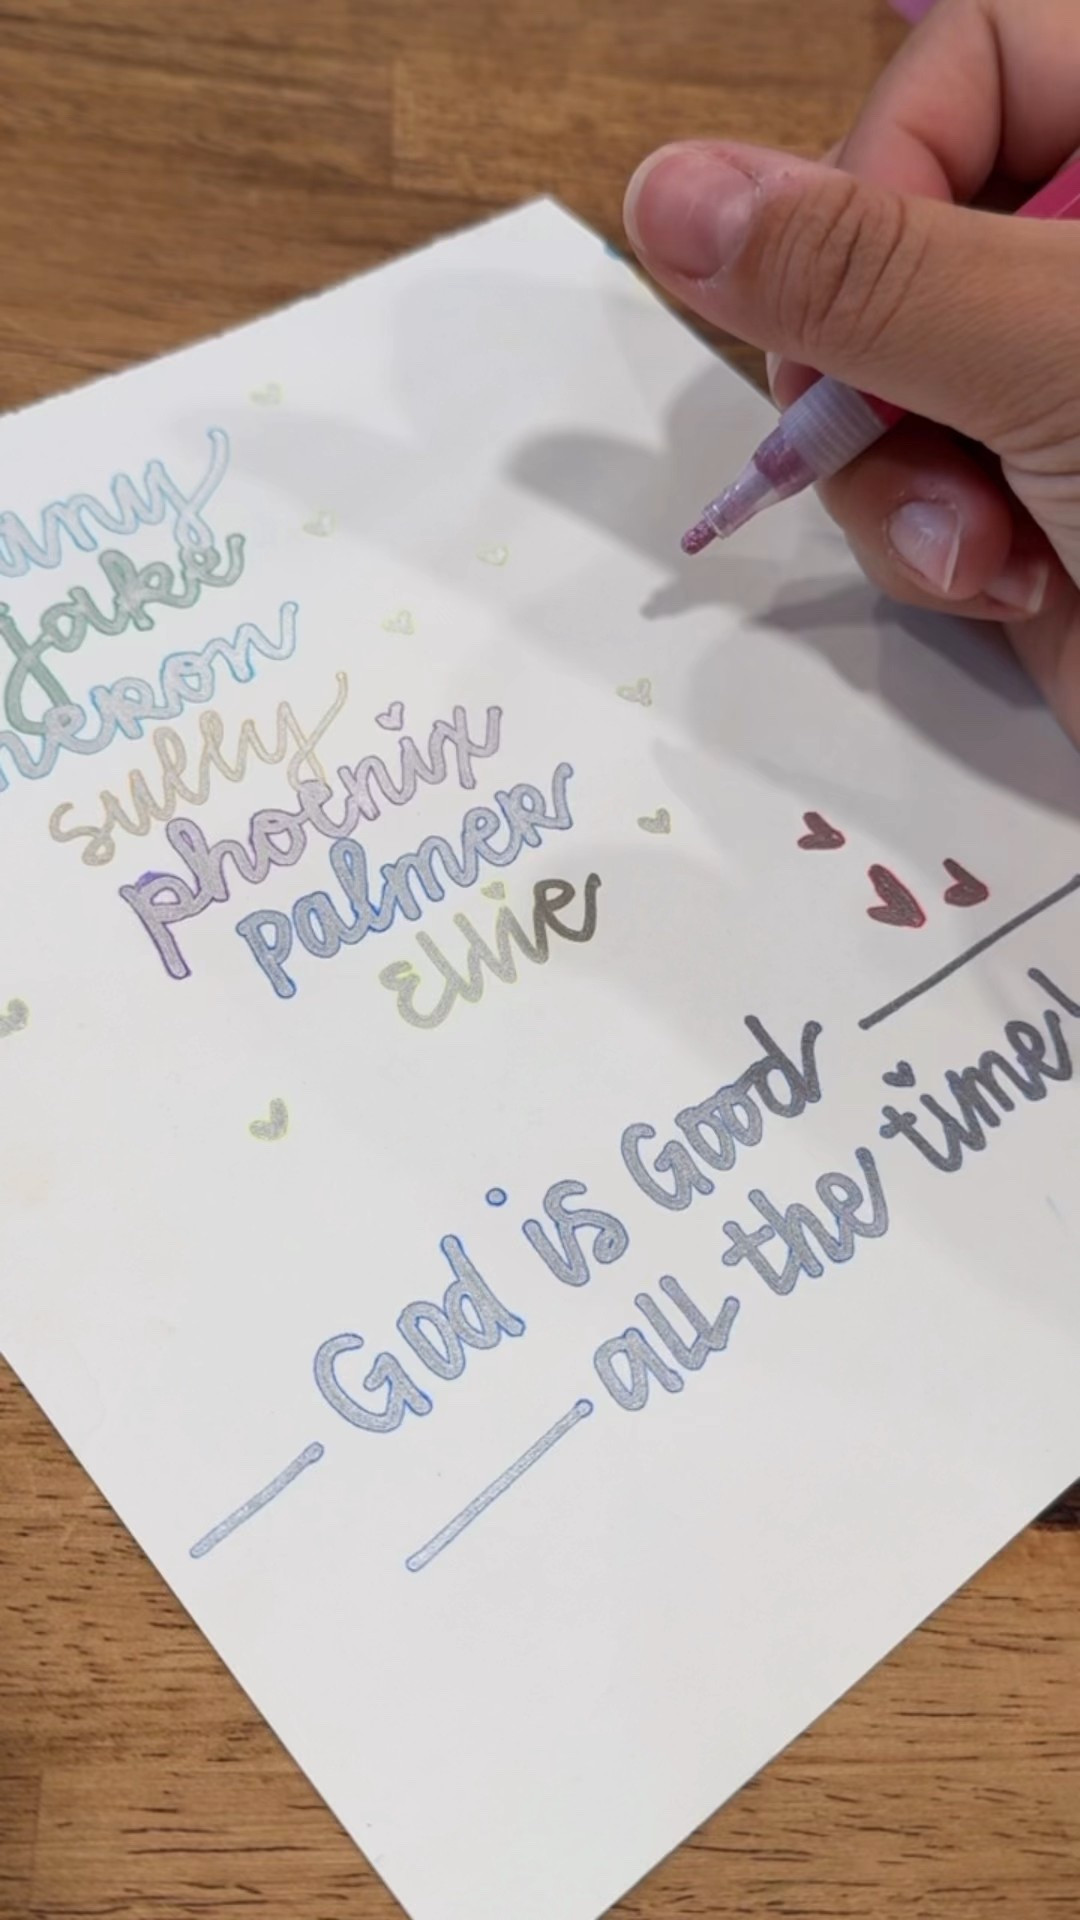 jake
sully
phoenix
palmer
Ellie
God is Good
all the time!